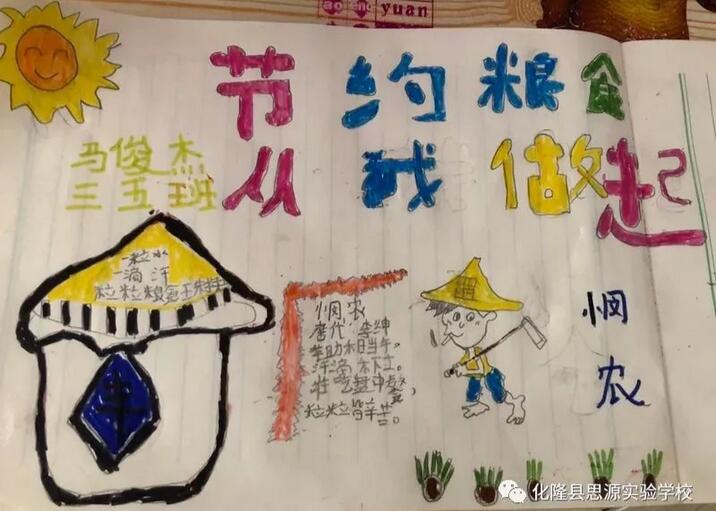 yuan
节约粮食
从我做起
马俊杰
三五班
一粒水
一滴汗
粒粒粮食
悯农
唐代 李绅
日当午。
汗滴禾下土。
盘中
粒粒皆辛苦。
悯
农
化隆县思源实验学校